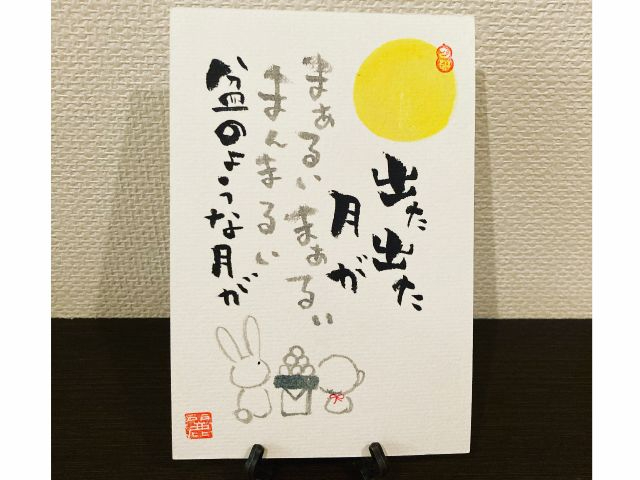 出た出た
月が
まあるいまあるい
まんまるい
盆のような月が